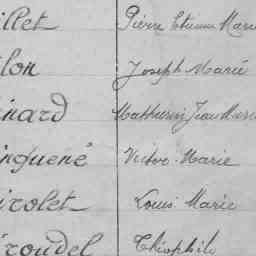 illet Pierre Etienne Marie
lon Joseph Marie
nard Mathurin Jean Marie
nguené Victor-Marie
irolet Louis Marie
roudel Théophile